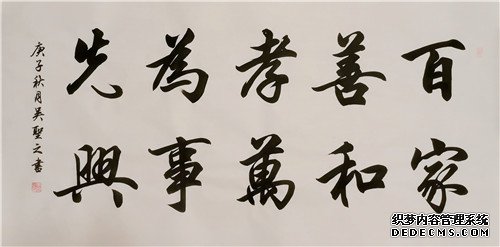 百善孝為先
家和萬事興
庚子秋月吴聖之書
织梦内容管理系统
DEDECMS.COM